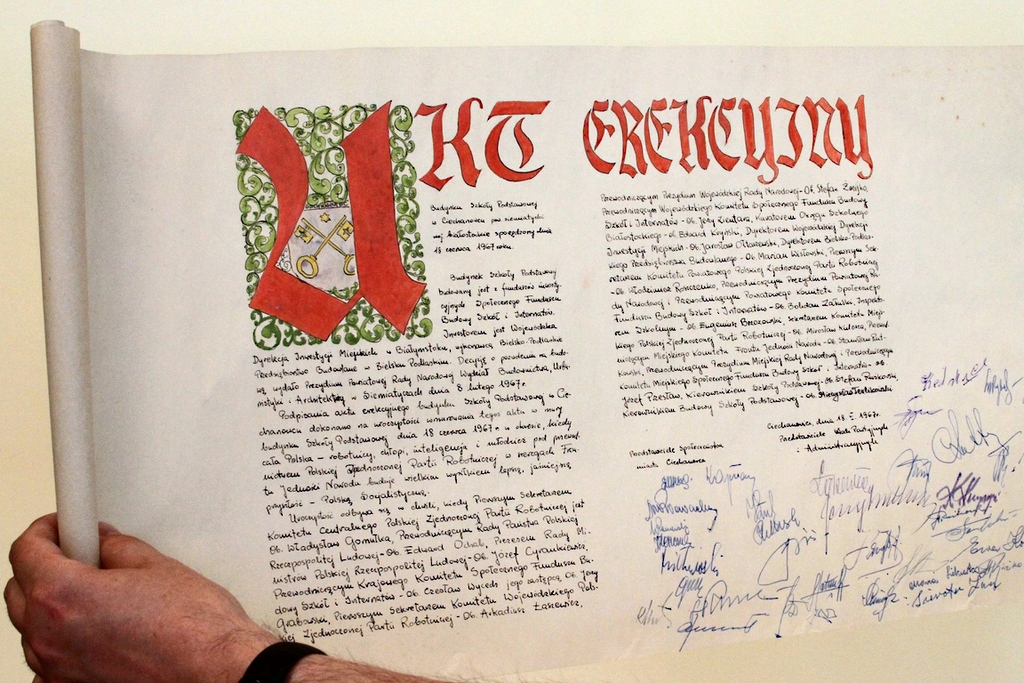 AKT EREKCYJNY
Budynku Szkoły Podstawowej
w Ciechanowcu pow. siematycki
woj. białostockie sporządzony dnia
18 czerwca 1967 roku.
Budynek Szkoły Podstawowej
budowany jest z funduszów inwesty-
cyjnych Społecznego Funduszu
Budowy Szkół i Internatów.
Inwestorem jest Wojewódzka
Dyrekcja Inwestycji Miejskich w Białymstoku, wykonawcą Bielsko-Podlaskie
Przedsiębiorstwo Budowlane w Bielsku Podlaskim. Decyzję o pozwoleniu na budo-
wę wydało Prezydium Powiatowej Rady Narodowej Wydział Budownictwa, Urba-
nistyki i Architektury w Siemiatyczach dnia 8 lutego 1967 r.
Podpisania aktu erekcyjnego budynku Szkoły Podstawowej w Cie-
chanowcu dokonano na uroczystości wmurowania tegoż aktu w mury
budynku Szkoły Podstawowej dnia 18 czerwca 1967 r. w okresie, kiedy
cała Polska - robotnicy, chłopi, inteligencja i młodzież pod przewod-
nictwem Polskiej Zjednoczonej Partii Robotniczej w szeregach Fron-
tu Jedności Narodu buduje wielkim wysiłkiem lepszą, jaśniejszą
przyszłość - Polskę Socjalistyczną.
Uroczystość odbywa się w chwili, kiedy Pierwszym Sekretarzem
Komitetu Centralnego Polskiej Zjednoczonej Partii Robotniczej jest
Ob. Władysław Gomułka, Przewodniczącym Rady Państwa Polskiej
Rzeczpospolitej Ludowej - Ob. Edward Ochab, Prezesem Rady Mi-
nistrów Polskiej Rzeczpospolitej Ludowej - Ob. Józef Cyrankiewicz,
Przewodniczącym Krajowego Komitetu Społecznego Funduszu Bu-
dowy Szkół i Internatów - Ob. Czesław Wycech, jego zastępcą Ob. Jerzy
Grabowski, Pierwszym Sekretarzem Komitetu Wojewódzkiego Pol-
skiej Zjednoczonej Partii Robotniczej - Ob. Arkadiusz Łaszewicz,
Przewodniczącym Prezydium Wojewódzkiej Rady Narodowej - Ob. Stefan Żmijko,
Przewodniczącym Wojewódzkiego Komitetu Społecznego Funduszu Budowy
Szkół i Internatów - Ob. Jerzy Zientara, Kuratorem Okręgu Szkolnego
Białostockiego - Ob. Edward Kryński, Dyrektorem Wojewódzkiej Dyrekcji
Inwestycji Miejskich - Ob. Jarosław Olszewski, Dyrektorem Bielsko-Podlas-
kiego Przedsiębiorstwa Budowlanego - Ob. Marian Wisłowski, Pierwszym Sek-
retarzem Komitetu Powiatowego Polskiej Zjednoczonej Partii Robotniczej
- Ob. Włodzimierz Romczenko, Przewodniczącym Prezydium Powiatowej Ra-
dy Narodowej i Przewodniczącym Powiatowego Komitetu Społecznego
Funduszu Budowy Szkół i Internatów - Ob. Bohdan Załuski, Inspekto-
rem Szkolnym - Ob. Eugeniusz Brzozowski, Sekretarzem Komitetu Miej-
skiego Polskiej Zjednoczonej Partii Robotniczej - Ob. Mirosław Kulesza, Przewod-
niczącym Miejskiego Komitetu Frontu Jedności Narodu - Ob. Stanisław
Przewodniczącym Prezydium Miejskiej Rady Narodowej i Przewodniczącym
Komitetu Miejskiego Społecznego Funduszu Budowy Szkół i Internatów - Ob.
Józef Kierownikiem Szkoły Podstawowej - Ob. Stefan
Kierownikiem Budowy Szkoły Podstawowej - Ob. Mieczysław
Ciechanowiec, dnia 18.VI.1967r.
Przedstawiciele Społeczeństwa
miasta Ciechanowca
Przedstawiciele Władz Partyjnych
i Administracyjnych